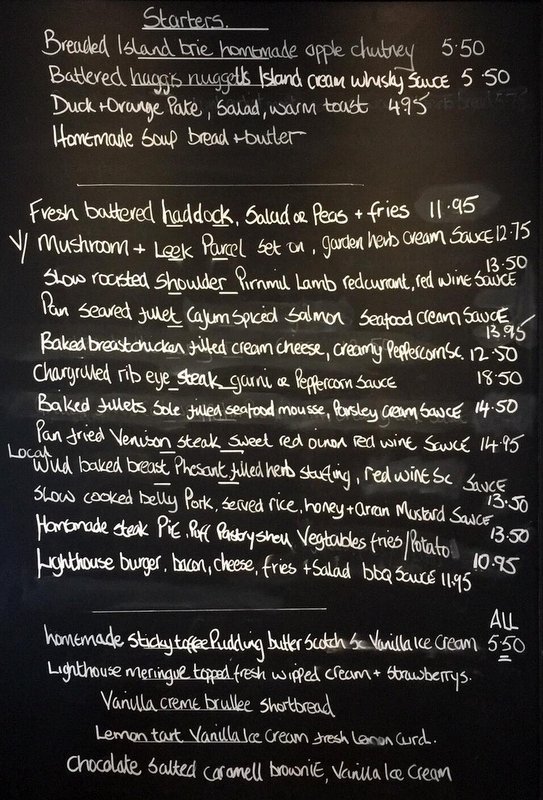 Starters.
Breaded Island brie homemade apple chutney 5.50
Battered haggis nuggets Island cream whisky sauce 5.50
Duck + Orange Pate, Salad, warm toast 495
Homemade Soup bread + butter
Fresh battered haddock, Salad or Peas + fries 11.95
V/ Mushroom + Leek Parcel set on, garden herb cream sauce 12.75
Slow roasted Shoulder Pirnmil Lamb redcurrant, red wine sauce 13.50
Pan seared fillet Cajum spiced salmon Seafood cream sauce 13.95
Baked breast chicken filled cream cheese, creamy Peppercorn Sc 12.50
Chargrilled rib eye steak garni or Peppercorn sauce 18.50
Baked fillets Sole filled seafood mousse, Parsley cream sauce 14.50
Pan fried Venison steak sweet red oinon red wine sauce 14.95
Local Wild baked breast Phesant filled herb stuffing, red wine Sc sauce
Slow cooked belly Pork, served rice, honey + Arran Mustard Sauce 13.50
Homemade steak PiE, Puff Pastry shell Vegtables fries/Potato 13.50
Lighthouse burger, bacon, cheese, fries + Salad bbq sauce 10.95
11.95
ALL
homemade sticky toffee Pudding butter Scotch Sc Vanilla Ice Cream 5.50
Lighthouse meringue topped fresh wipped cream + strawberrys.
Vanilla creme brullee shortbread
Lemon tart Vanilla Ice Cream fresh Lemon Curd.
Chocolate Salted caramell brownie, Vanilla Ice Cream